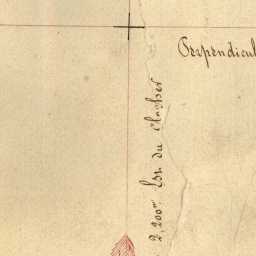 Perpendicul
2,200m Est du Clocher